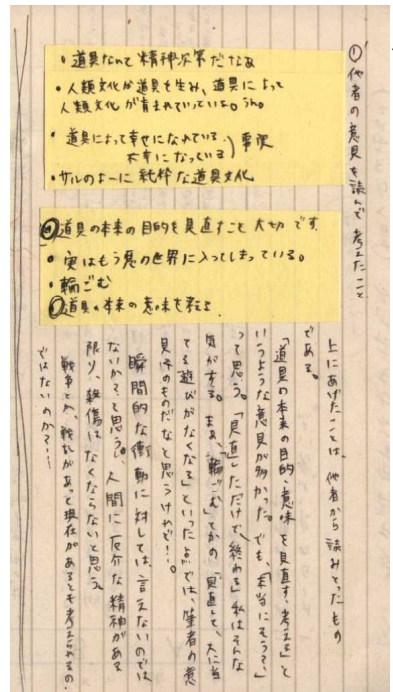 ①他者の意見を読んで考えたこと
・道具なんて精神次第だなぁ
・人類文化が道具を生み、道具によって
人類文化が育まれていっている。うん。
・道具によって幸せになれている
不幸になっている 事実
・サルのよーに純粋な道具文化
道具の本来の目的を見直すこと大切です。
・実はもう悪の世界に入ってしまっている。
・輪ごむ
道具の本来の意味を考える
上にあげたことは、他者から読みとったもの
である。
「道具の本来の目的・意味を見直す、考える」と
いうような意見が多かった。でも、「本当にそう?」
って思う。「見直し」ただけで、終わる 私はそんな
気がする。まぁ、「輪ごむ」とかの「見直して、人に当
てる遊びがなくなる」といったよーでは、筆者の意
見そのものだなと思うけれど…。
瞬間的な衝動に対しては、言えないのでは
ないか?と思う。人間に厄介な精神がある
限り、殺傷はなくならないと思う。
戦争とか、戦乱があって現在があるとも考えられるの
ではないのか?…